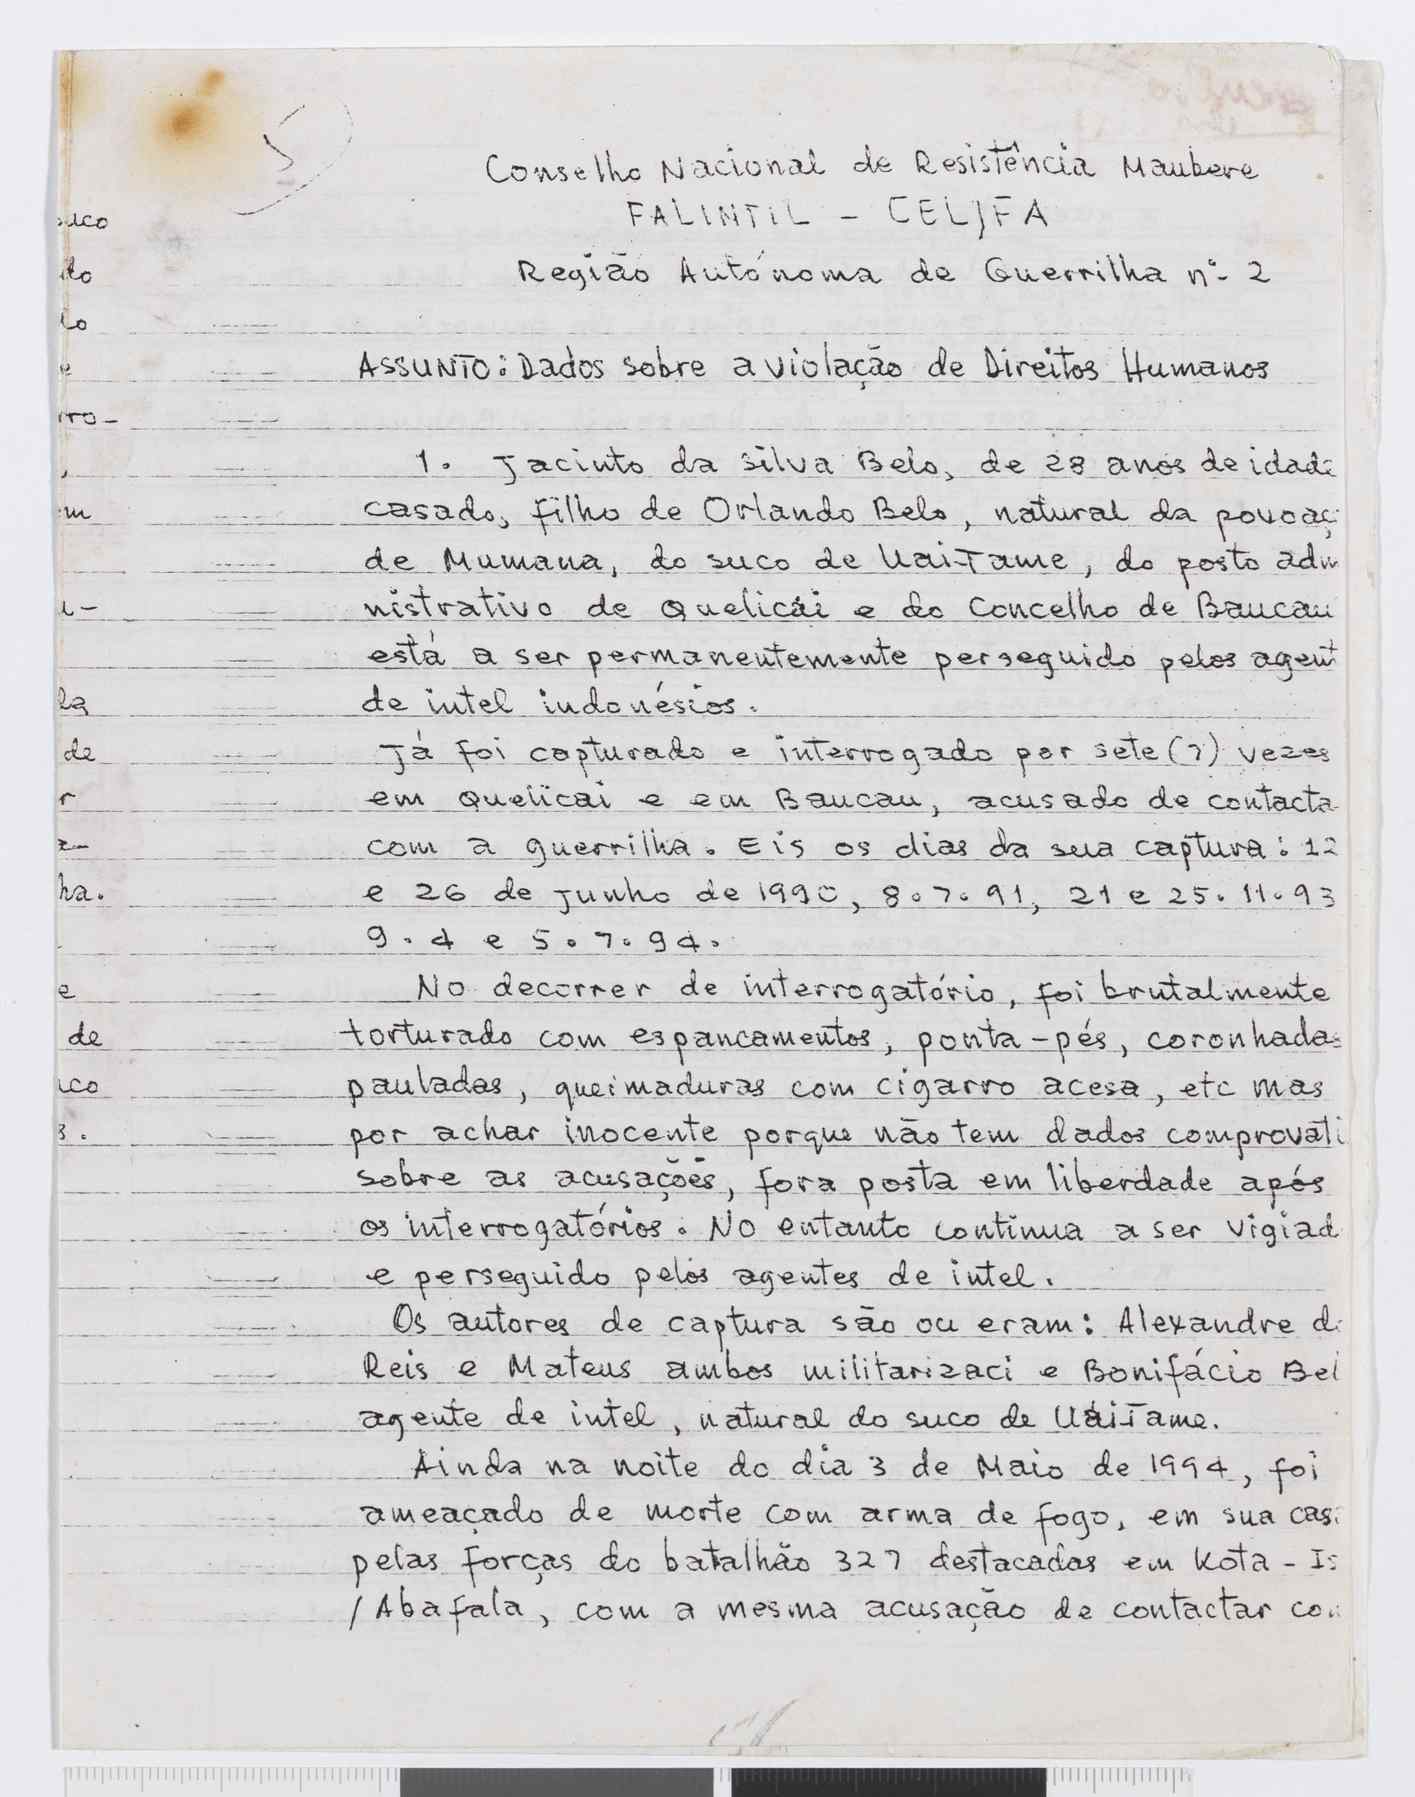 5
Conselho Nacional de Resistência Maubere
FALINTIL - CEL/FA
Região Autónoma de Guerrilha nº 2
ASSUNTO: Dados sobre a violação de Direitos Humanos
1. Jacinto da Silva Belo, de 28 anos de idade
casado, filho de Orlando Belo, natural da povoaç
de Mumana, do suco de Uai-Tame, do posto adm
nistrativo de Quelicái e do Concelho de Baucau
está a ser permanentemente perseguido pelos agent
de intel indonésios.
Já foi capturado e interrogado por sete (7) vezes
em Quelicai e em Baucau, acusado de contacta
com a guerrilha. Eis os dias da sua captura: 12
e 26 de Junho de 1990, 8.7.91, 21 e 25.11.93
9.4 e 5.7.94.
No decorrer de interrogatório, foi brutalmente
torturado com espancamentos, ponta-pés, coronhadas
pauladas, queimaduras com cigarro acesa, etc mas
por achar inocente porque não tem dados comprovati
sobre as acusações, fora posta em liberdade após
os interrogatórios. No entanto continua a ser vigiad
e perseguido pelos agentes de intel.
Os autores de captura são ou eram: Alexandre d
Reis e Mateus ambos militarizaci e Bonifácio Bel
agente de intel, natural do suco de Uái-Tame.
Ainda na noite do dia 3 de Maio de 1994, foi
ameaçado de morte com arma de fogo, em sua cas
pelas forças do batalhão 327 destacadas em Kota-Is
/Abafala, com a mesma acusação de contactar co
uco
do
lo
e
rro-
,
em
u-
la
de
r
a-
ha.
e
de
uco
3.